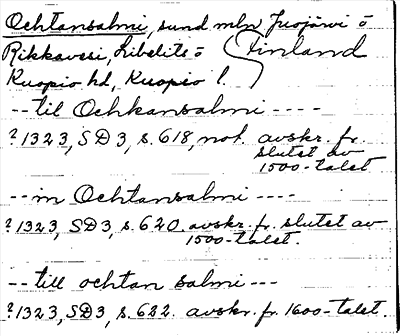 Ochtansalmi, sund mln Juojärvi o
Rikkavesi, Libelits o Finland
Kuopio hd, Kuopio l.
-- til Ochkansalmi ----
? 1323, SD 3, s. 618, not. avskr. fr.
slutet av
1500-talet
-- in Ochtansalmi ----
? 1323, SD 3, s. 620 avskr. fr. slutet av
1500-talet.
-- till ochtan salmi ---
? 1323, SD 3, s. 622. avskr. fr. 1600-talet.